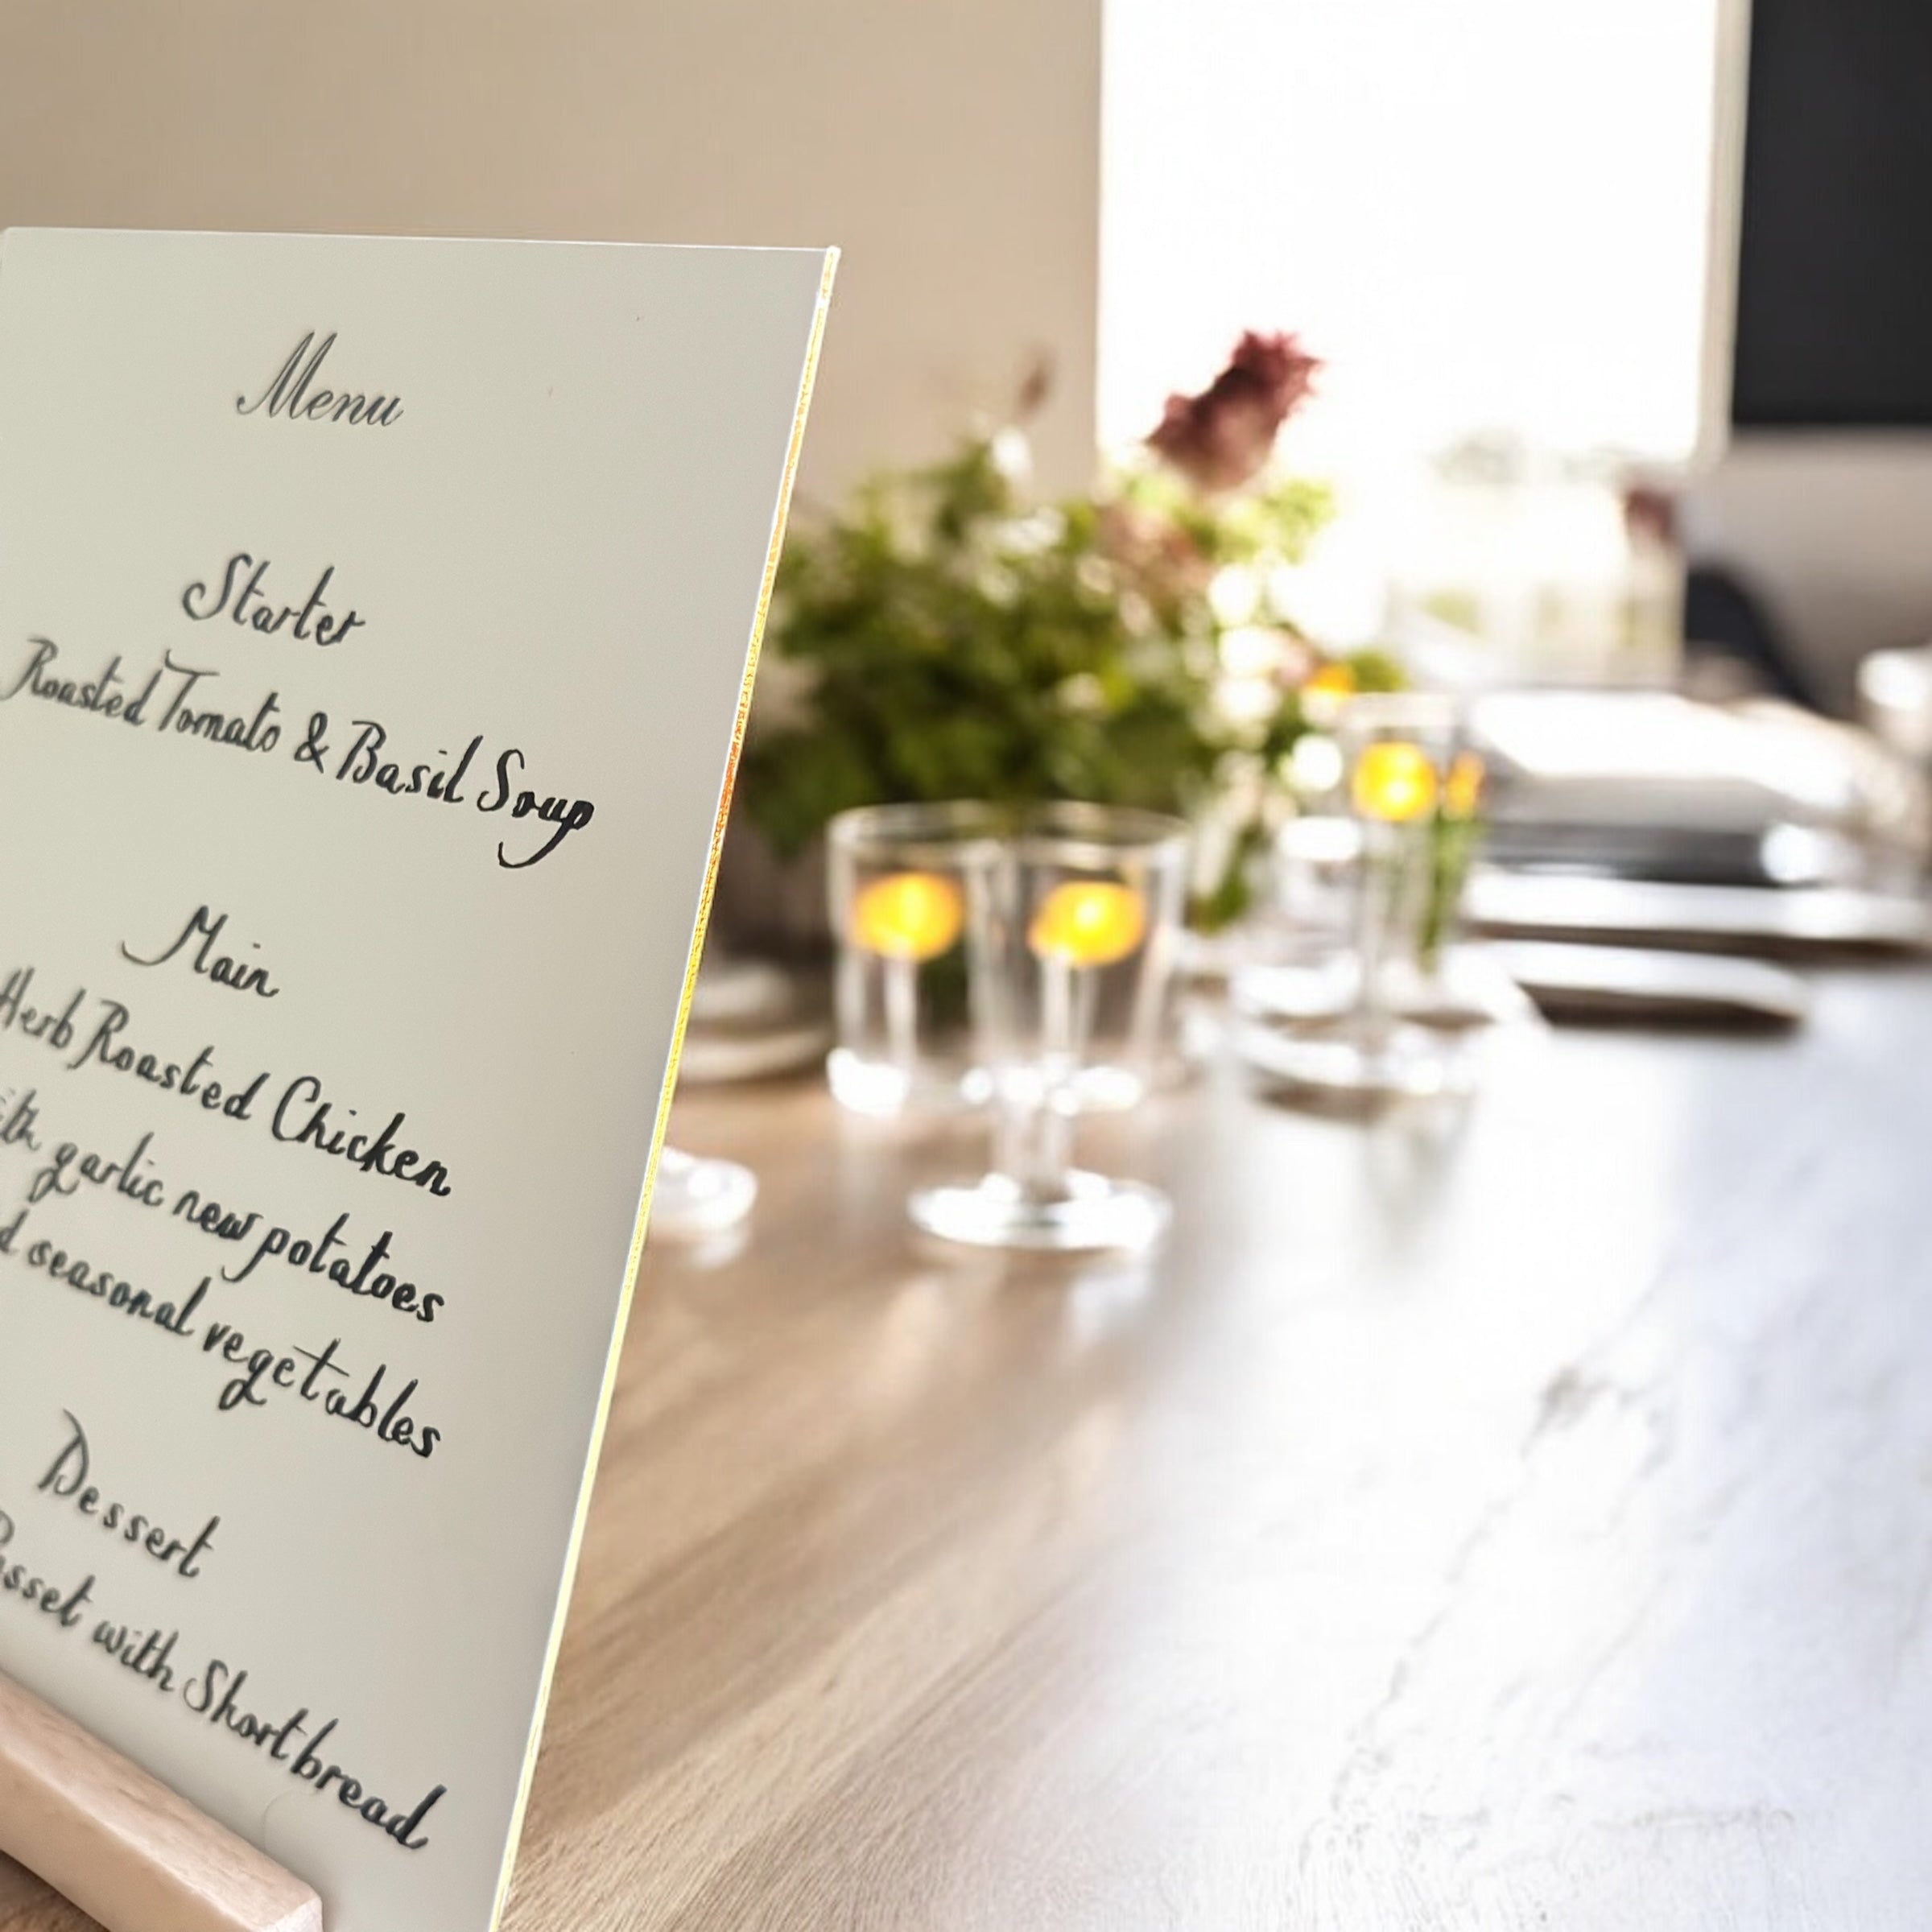 Menu
Starter
Roasted Tomato & Basil Soup
Main
Herb Roasted Chicken
garlic new potatoes
seasonal vegetables
Dessert
with Shortbread